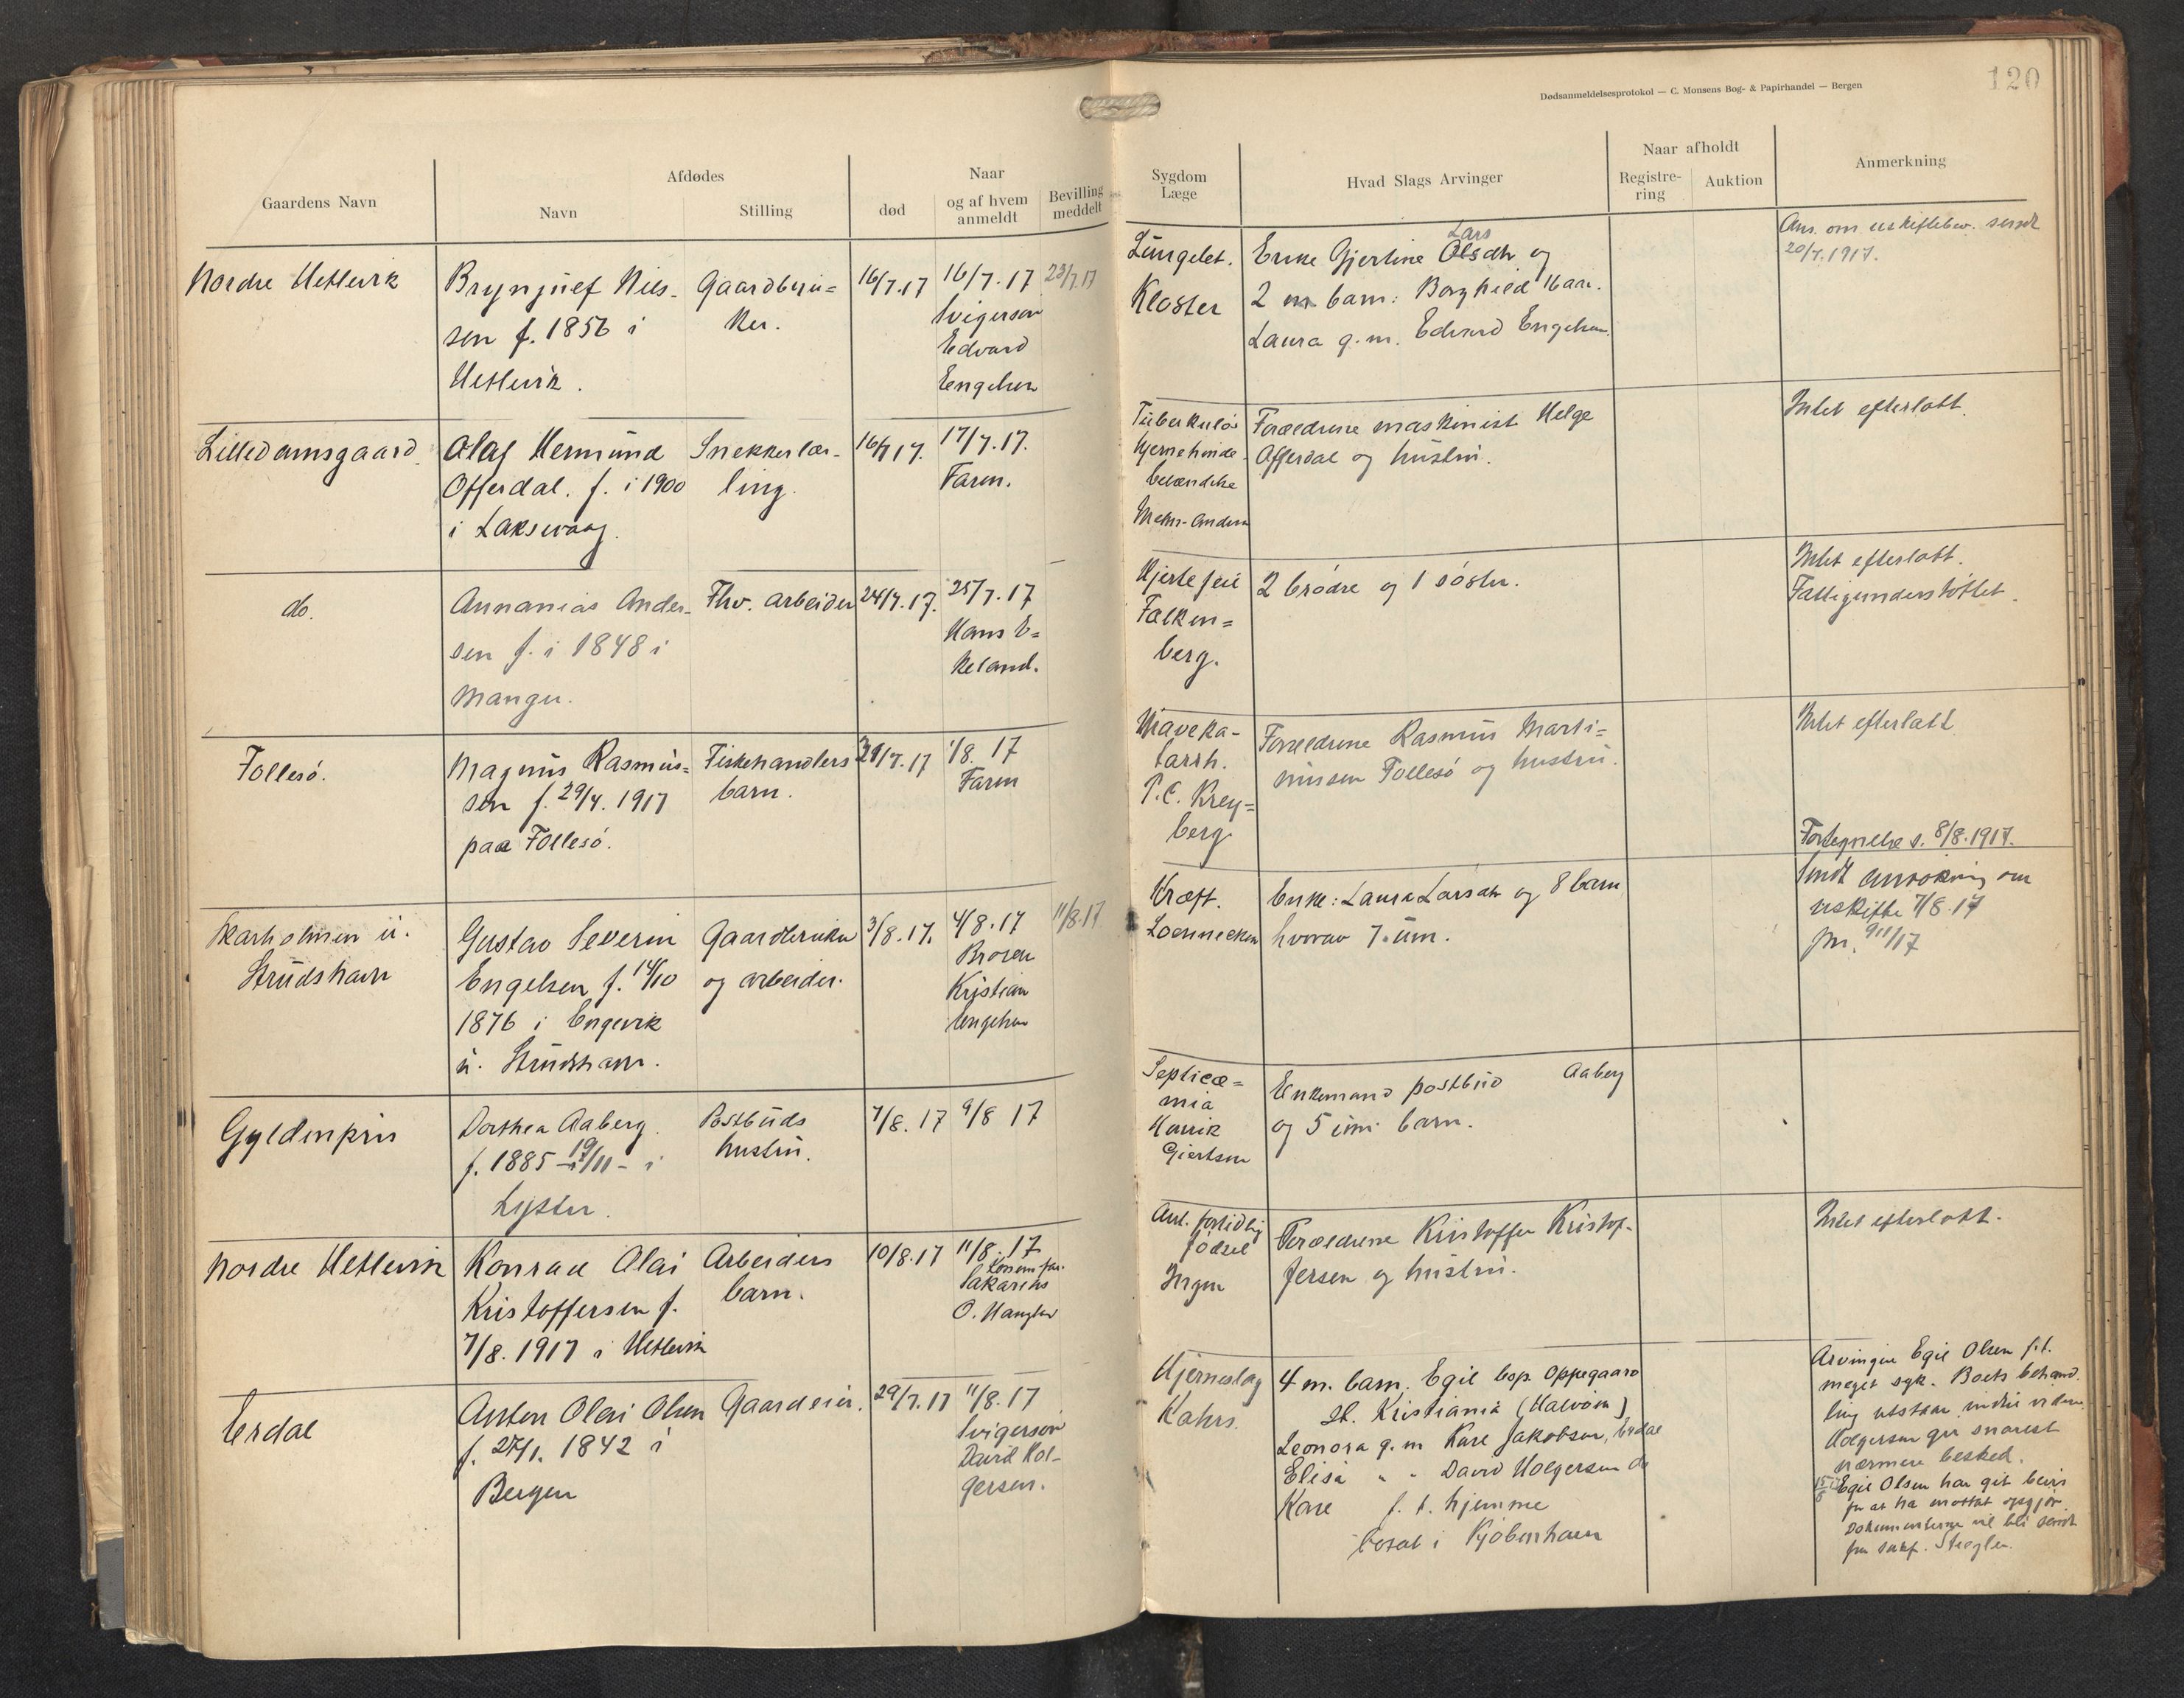 120
Dødsanmeldelsesprotokol — C. Monsens Bog- & Papirhandel — Bergen
Gaardens Navn
Afdødes
Navn
Stilling
Naar
død
og af hvem anmeldt
Bevilling meddelt
Sygdom
Læge
Hvad Slags Arvinger
Naar afholdt
Registre-
ring
Auktion
Anmerkning
Nordre Hetlevik
Brynjulf Niels-
sen f. 1856 i
Hetlevik.
Gaardbru=
ker.
16/7.17
16/7.17
Svigersøn
Edvard
Engelsen
23/7.17
Lungebet.
Kloster
Enke Gjertine Olsdtr og
Lars
2 m barn: Borghild 16 aar.
Laura g.m. Edvard Engelsen.
Ans. om uskiftebev. sendt
20/7.1917.
Lilledamsgaard.
Olaf Hermund
Offerdal. f. i 1900
i Laksevaag.
Snekkerlær-
ling.
16/7 17.
17/7.17.
Faren.
Tuberkuløs
hjernehinde-
betændelse
Mohn-Andersen
Forældrene maskinist Helge
Offerdal og hustru.
Intet efterlatt.
do.
Annanias Ander-
sen f. i 1848 i
Manger.
Fhv. arbeider
24/7.17.
25/7.17
Hans E=
keland.
Hjertefeil
Falken=
berg.
2 brødre og 1 søster.
Intet efterlatt.
Fattigunderstøttet.
Follesø.
Magnus Rasmus=
sen f. 29/4. 1917
paa Follesø.
Fiskehandlers
barn.
29/7.17
1/8. 17
Faren
Maveka-
tarrh.
P.C. Krey=
berg
Forældrene Rasmus Marti=
niussen Follesø og hustru.
Intet efterlatt
Skarholmen u.
Strudshavn
Gustav Severin
Engelsen f. 14/10
1876 i Engevik
u. Strudshavn.
Gaardbruker
og arbeider.
3/8.17.
4/8.17
Broren
Kristian
Engelsen
11/8.17
Kræft.
Loennecken
Enke: Laura Larsdtr og 8 barn
hvorav 7 um.
Fortegnelse s. 8/8.1917.
Sendt ansøkning om
uskifte 7/8.17
Gyldenpris
Dorthea Aaberg.
f. 1885 19/11 - i
Lyster.
Postbuds
hustru.
7/8.17
9/8 17
Septicæ=
mia
Henrik
Giertsen
Enkemand postbud Aaberg
og 5 um. barn.
Nordre Hetlevik
Konrad Olai
Kristoffersen f.
7/8.1917 i Hetlevik
Arbeiders
barn.
10/8.17
11/8.17
Sakarias
O. Hanglev
Ant. fortidlig
fødsel
Ingen
Forældrene Kristoffer Kristof-
fersen og hustru.
Intet efterlatt.
Erdal
Anton Olai Olsen
f. 27/1. 1842 i
Bergen
Gaardeier.
29/7.17
11/8.17
Svigersøn
David Hol-
gersen.
Hjerneslag
Kahrs.
4 m. barn. Egil bop. Oppegaard
st. Kristiania (Halvøien)
Leonora g.m Karl Jakobsen, Erdal
Elisa " - David Holgersen do
Kare f. t. hjemme
bosat i Kjøbenhavn
Arvingen Egil Olsen f.t.
meget syk. Boets behand-
ling utstaar indtil videre.
Holgersen gir snarest
nærmere besked.
Egil Olsen har git bevis
for at ha mottat opgjør.
Dokumenterne vil bli sendt
fra sakf. Stegler.